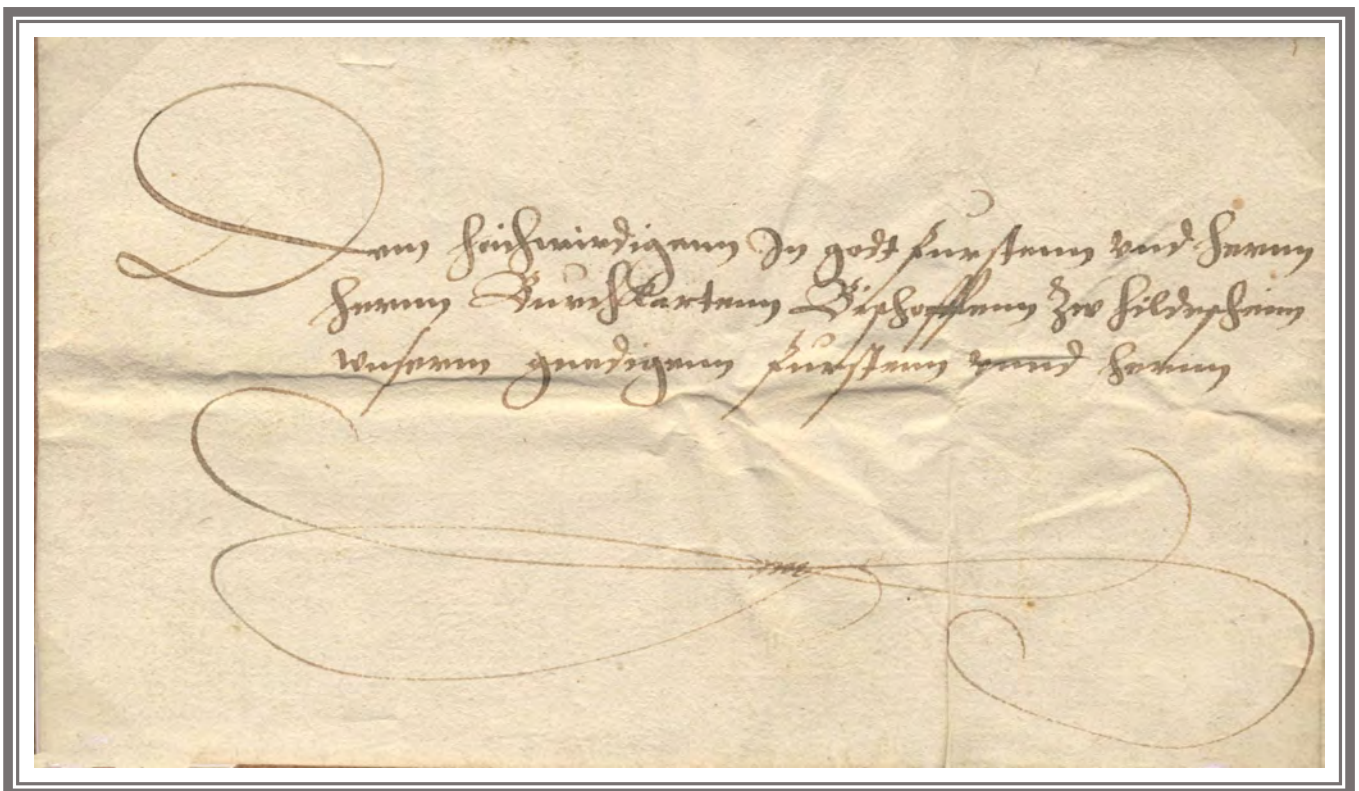 Dem hochwirdigenn In godt furstenn vnd hernn
hernn Burchkartenn Bischoffenn zw hildesheim
vnserm gnedigenn furstenn vnnd hernn